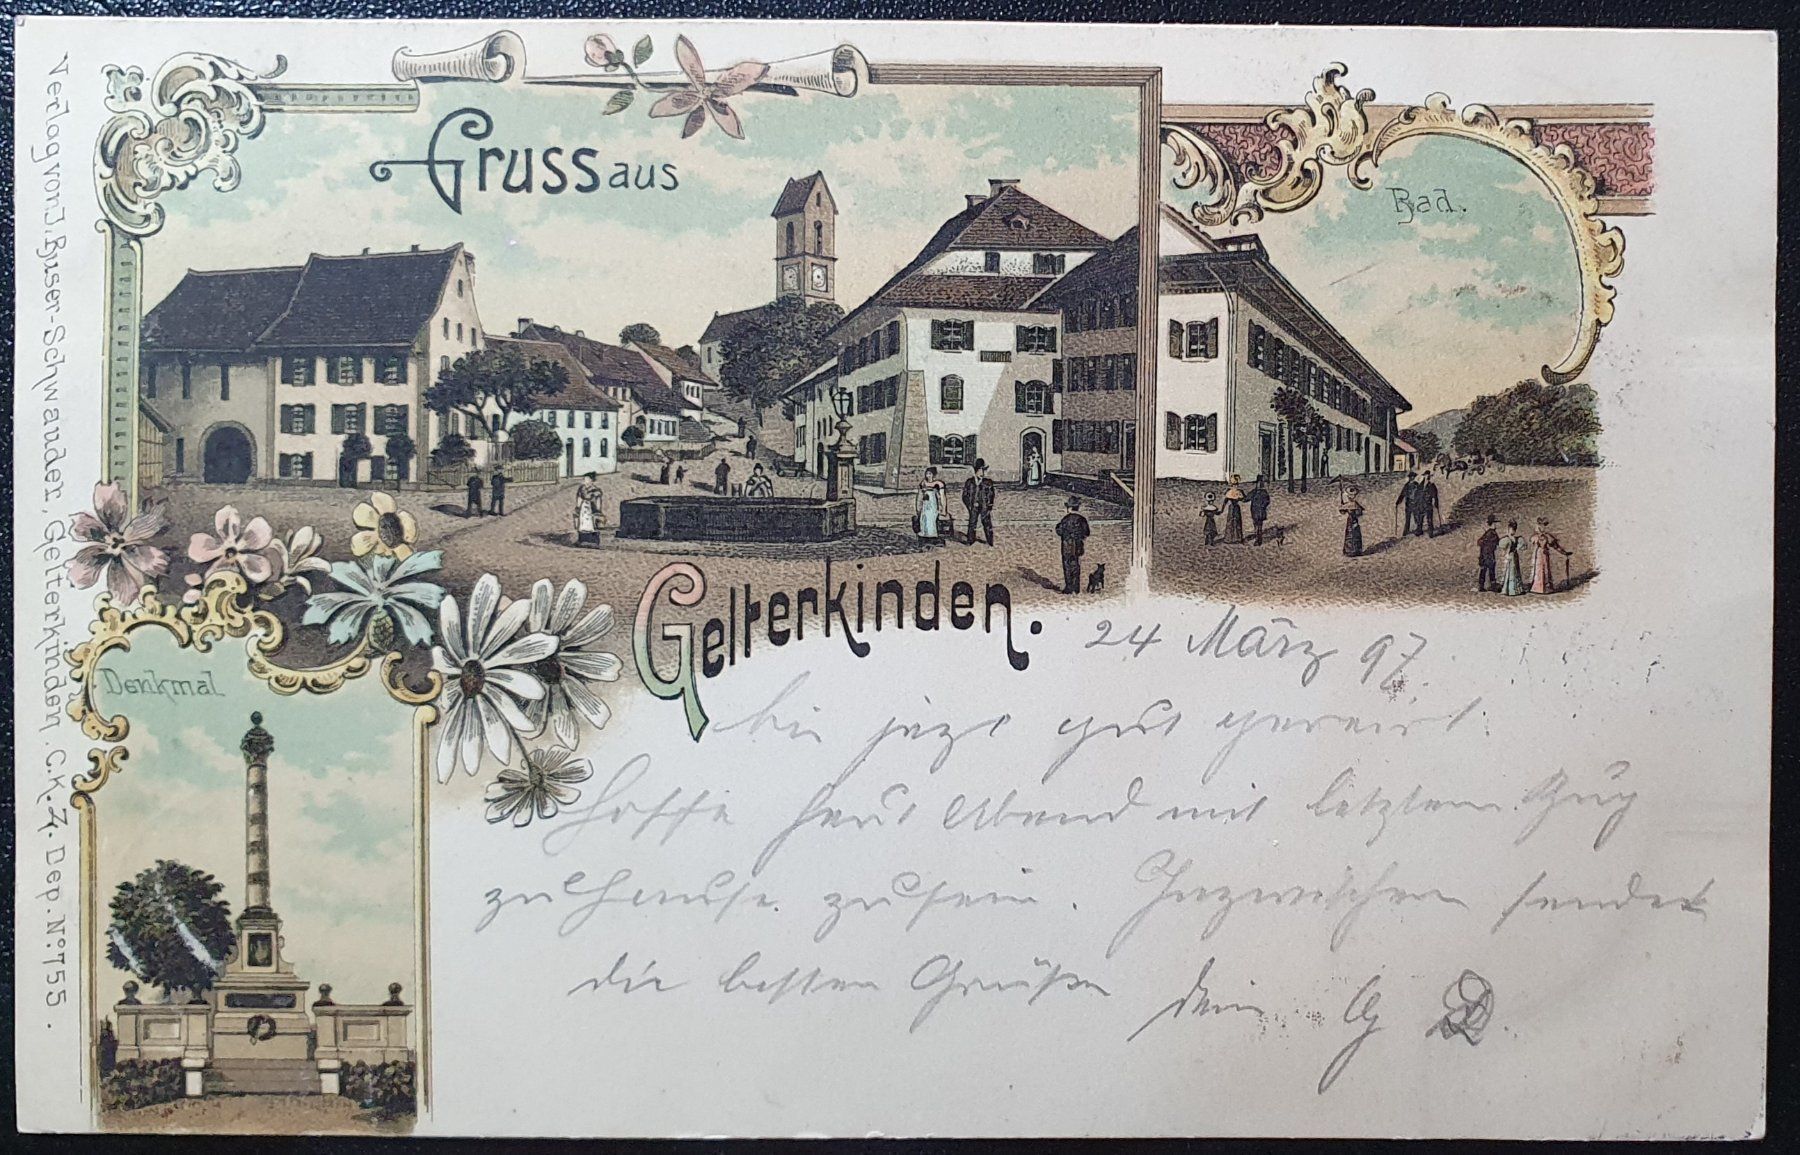 Gruss aus
Gelterkinden.
Bad.
Denkmal
Verlag von J. Buser-Schwander, Gelterkinden. C.K.Z. Dep. No. 755.
24 März 97.
bin jezt gut gereist.
Hoffe heut Abend mit letztem Zug
zu Hause zu sein. Inzwischen sendet
die besten Grüße Dein